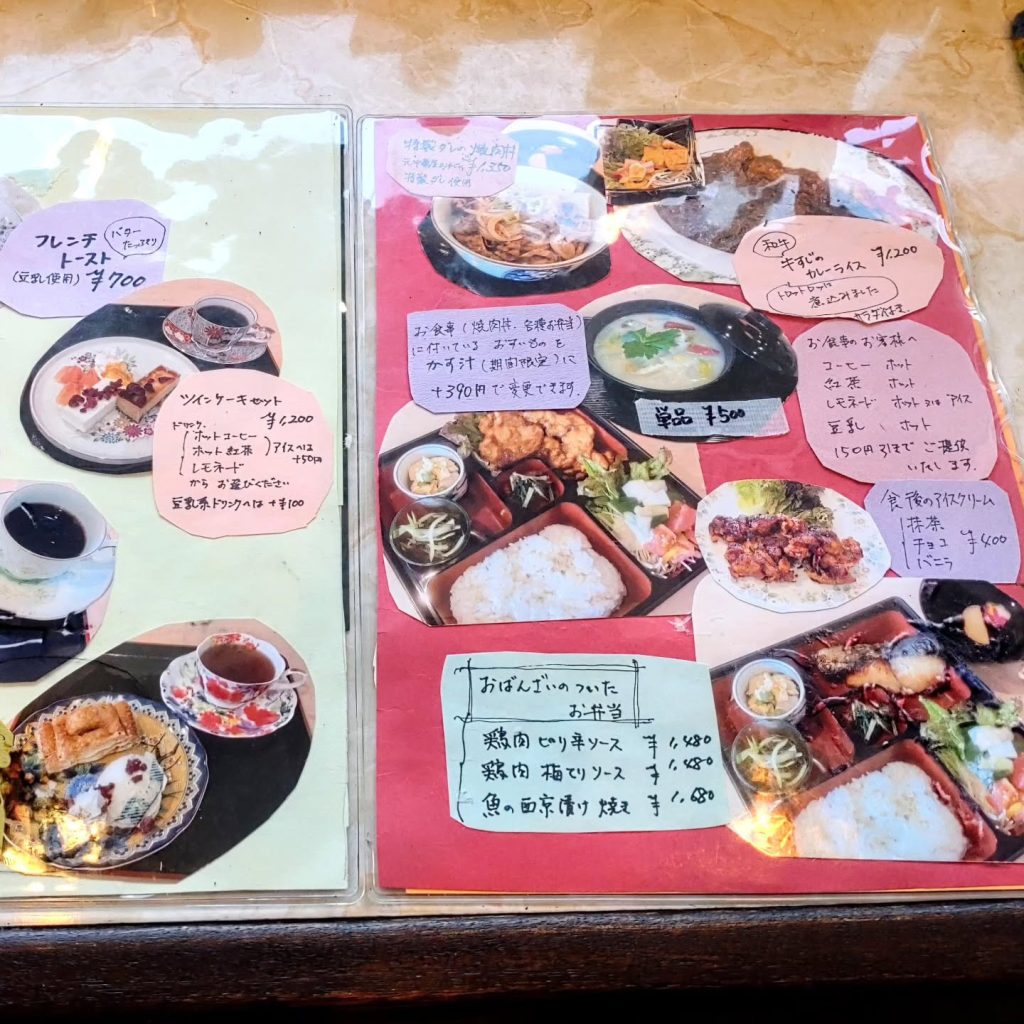 フレンチ
トースト
バター
たっぷり
(豆乳使用) ¥700
ツインケーキセット
¥1,200
ドリンク
ホットコーヒー
ホット紅茶
レモネード
アイスへは
+50円
から お選びください
豆乳系ドリンクへは+¥100
特製ダレの 焼肉丼
¥1,350
特製ダレ使用
和牛
牛すじの
カレーライス ¥1,200
トロットロッに
煮込みました
サラダ付き
お食事 (焼肉丼、各種お弁当)
に付いている おすいものを
かす汁 (期間限定) に
+390円で変更できます.
単品 ¥500
お食事のお客様へ
コーヒー ホット
紅茶 ホット
レモネード ホット又は アイス
豆乳 ホット
150円引きで ご提供
いたします.
食後のアイスクリーム
抹茶
チョコ ¥400
バニラ
おばんざいのついた
お弁当
鶏肉 ピリ辛ソース ¥1,480
鶏肉 梅てりソース ¥1,480
魚の西京漬け 焼き ¥1,680